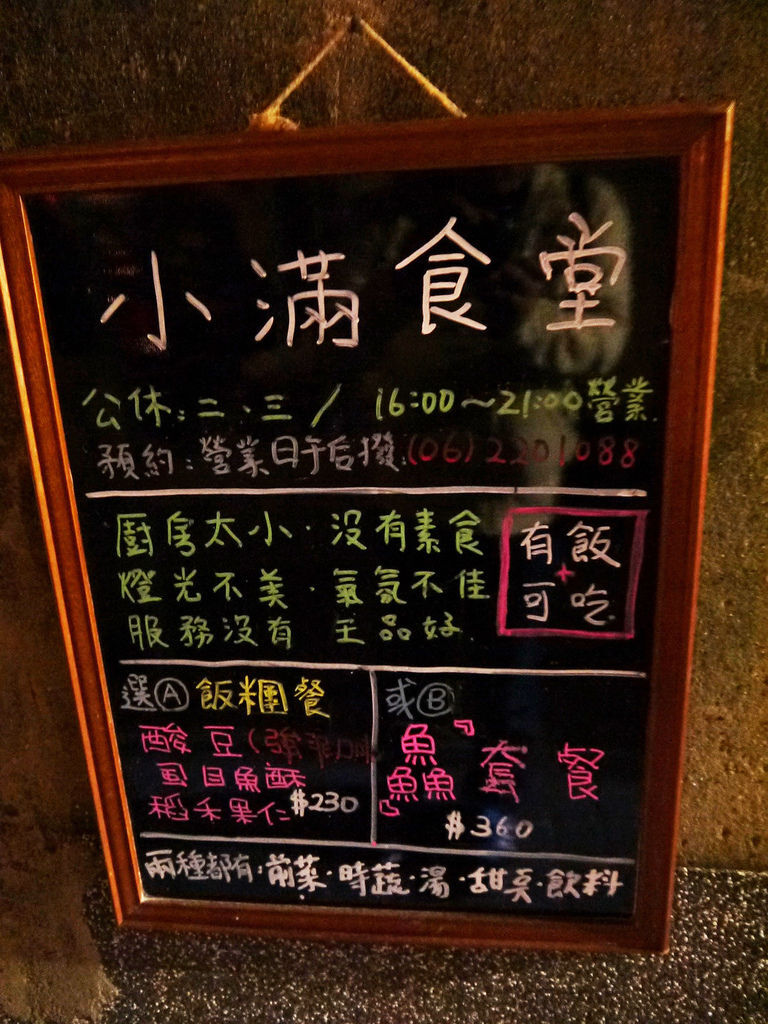 小滿食堂
公休:二、三/ 16:00~21:00營業.
預約:營業日午后撥:(06)2201088
廚房太小·沒有素食
燈光不美·氣氛不佳
服務沒有 王品好.
有飯
+
可吃.
選Ⓐ飯糰餐
酸豆(
虱目魚酥
稻禾果仁 $230
或Ⓑ
『鱻』套餐
$360
兩種都有·前菜·時蔬·湯·甜点·飲料